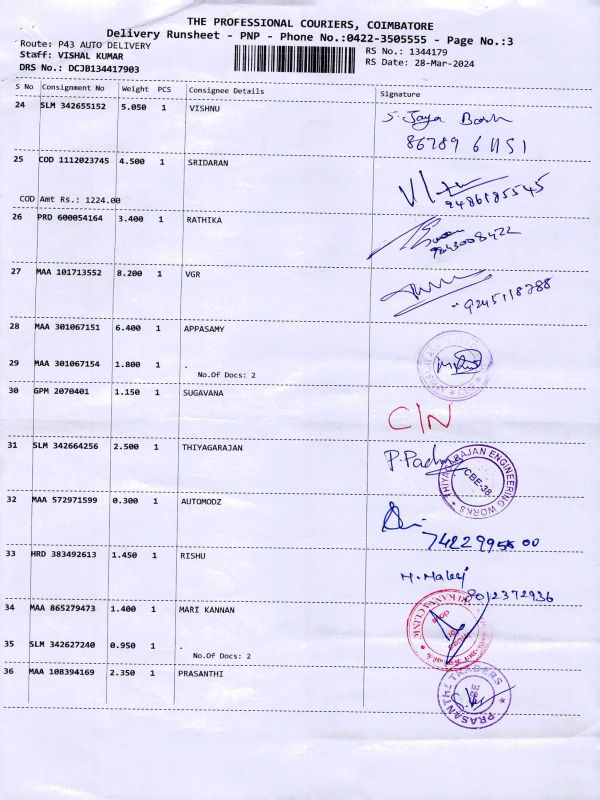 THE PROFESSIONAL COURIERS, COIMBATORE
Delivery Runsheet - PNP - Phone No.:0422-3505555 - Page No.:3
Route: P43 AUTO DELIVERY
RS No.: 1344179
Staff: VISHAL KUMAR
RS Date: 28-Mar-2024
DRS No.: DCJB134417903
S No Consignment No Weight PCS Consignee Details Signature
24 SLM 342655152 5.050 1 VISHNU
S. Jaya
86789 61151
25 COD 1112023745 4.500 1 SRIDARAN
9486185545
COD Amt Rs.: 1224.00
26 PRD 600054164 3.400 1 RATHIKA
9843008422
27 MAA 101713552 8.200 1 VGR
9245118788
28 MAA 301067151 6.400 1 APPASAMY
29 MAA 301067154 1.800 1 .
No.Of Docs: 2
30 GPM 2070401 1.150 1 SUGAVANA
C/N
31 SLM 342664256 2.500 1 THIYAGARAJAN
P. Padma
THIYAGARAJAN ENGINEERING WORKS
CBE-38.
32 MAA 572971599 0.300 1 AUTOMODZ
33 HRD 383492613 1.450 1 RISHU
8012372936
34 MAA 865279473 1.400 1 MARI KANNAN
35 SLM 342627240 0.950 1 .
No.Of Docs: 2
36 MAA 108394169 2.350 1 PRASANTHI
PRASANTHI TRADERS
CBE